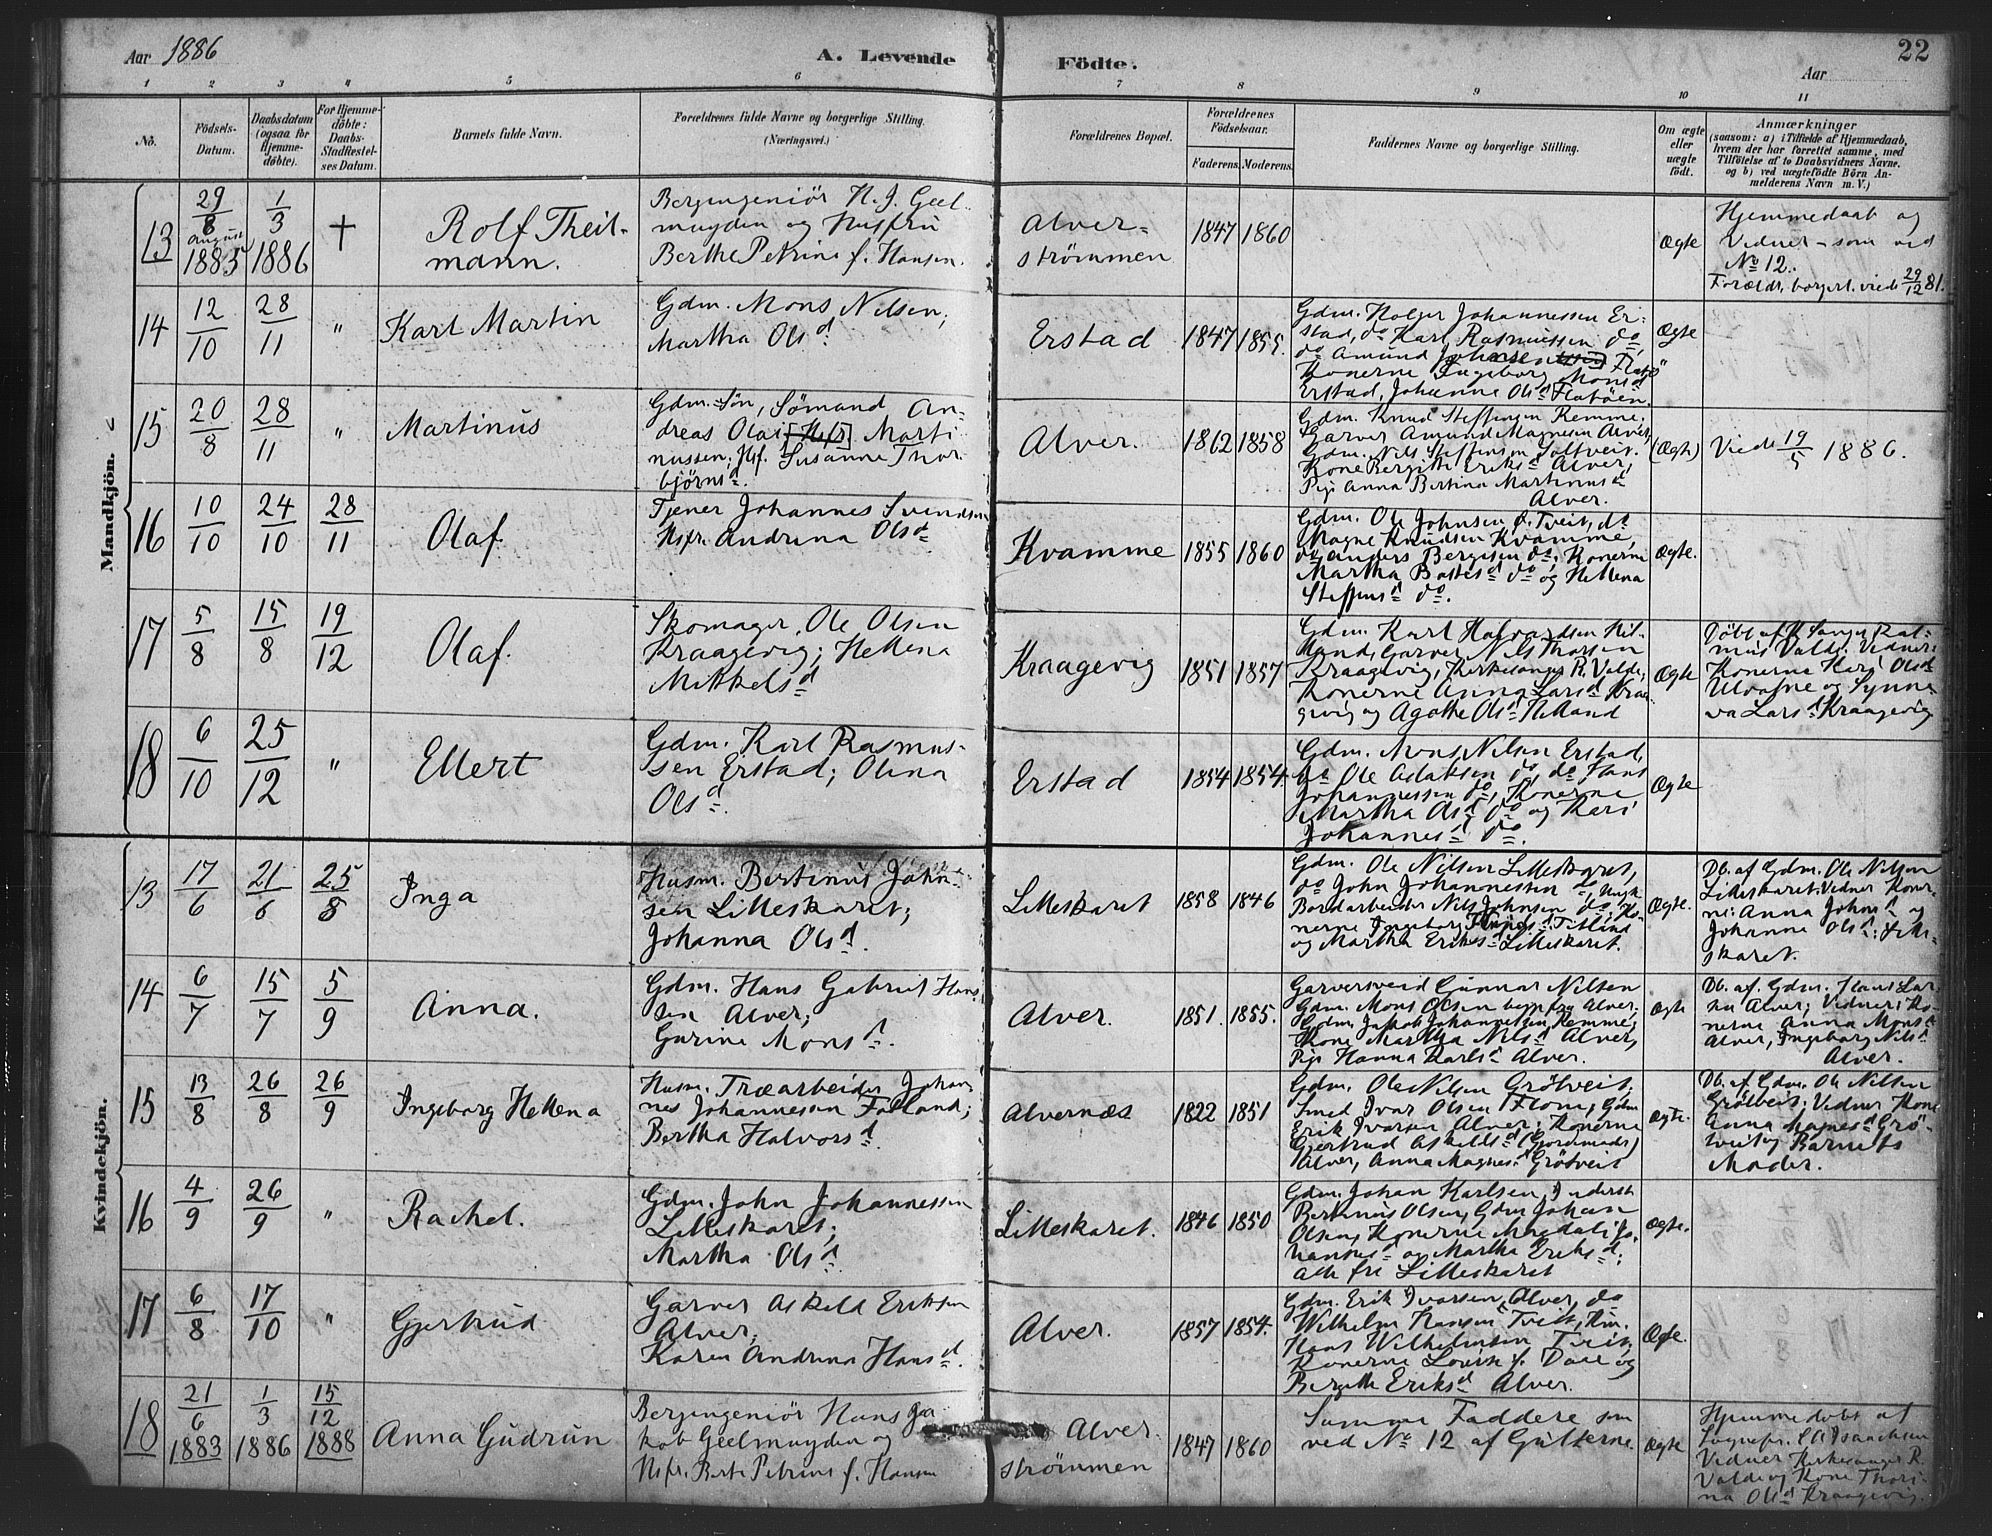 Aar 1886
A. Levende
Fødte.
22
Aar
1 2 3 4 5 6 7 8 9 10 11
No.
Födsels-
Datum.
Daabsdatum
(ogsaa for
Hjemme-
döbte).
For Hjemme-
döbte:
Daabs-
Stadfæstel-
ses Datum.
Barnets fulde Navn.
Forældrenes fulde Navne og borgerlige Stilling.
(Næringsvei.)
Forældrenes Bopæl.
Forældrenes
Födselsaar.
Faderens. Moderens.
Faddernes Navne og borgerlige Stilling.
Om ægte
eller
uægte
födt.
Anmærkninger
(saasom: a) i Tilfælde af Hjemmedaab,
hvem der har forrettet samme, med
Tilföielse af to Daabsvidners Navne.
og b) ved uægtefödte Börn An-
melderens Navn m. V.)
Mandkjön.
13
29/8
August
1885
1/3
1886
+
Rolf Theil-
mann.
Bergingeniör H. J. Geel-
muyden og Hustru
Berthe Petrine f. Hansen.
Alver-
strömmen
1847 1860
Ægte
Hjemmedaab og
Vidner - som ved
No 12.
Foreldr. borgerl. viede 29/12 81.
14
12/10
28/11
"
Karl Martin
Gdm. Mons Nilsen;
Martha Olsd
Erstad
1847 1855.
Gdm. Holger Johannessen Er-
stad, do Karl Rasmussen do,
do Amund
Konerne Ingeborg Monsd
Erstad, Johanne Olsd Flatöen.
Ægte
"
15
20/8
28/11
"
Martinus
Gdm.-Søn, Sømand An-
dreas Olai [Hsfr] Marti
nussen; Hsf. Susanna Thor
bjørnsd.
Alver.
1862 1858
Gdm. Knud Steffensen Remme.
Garver Amund Magnesen Alver,
Gdm. Nils Steffensen Toltveit.
Kone Bergitte Eriksd Alver,
Pige Anna Bertina Martinusd
Alver.
(Ægte)
Viede 19/5 1886.
16
10/10
24/10
28/11
Olaf
Tjener Johannes Svendsen
Hsfr. Andrina Olsd
Kvamme
1855 1860
Gdm. Ole Johnsen ö. Tveit, do
Magne Knudsen Kvamme,
do Anders Bergesen do; Konerne
Martha do og Hellena
Steffensd do.
Ægte.
17
5/8
15/8
19/12
Olaf.
Skomager, Ole Olsen
Kraagevig; Hellena
Mikkelsd
Kraagevig
1851 1857
Gdm. Karl Halvardsen Hil-
land, Garver Nils Thorsen
Kraagevig, Kirkesanger R. Valde,
Konerne Anna Larsd Kraa-
gevig og Agathe Olsd Helland
Ægte
Döbt af K Sanger Ras-
mus Valde. Vidner:
Konerne Kari Olsd
og Synne-
va Larsd Kraagevig
18
6/10
25/12
"
Ellert
Gdm. Karl Rasmus-
sen Erstad; Olina
Olsd.
Erstad
1854 1854.
Gdm. Mons Nilsen Erstad,
do Ole Aslaksen do, do Hans
Johannessen do, Konerne
Martha Olsd do og Kari
Johannesd do.
Ægte
Kvindekjön.
13
17/6
21/6
25/8
Inga
Husm. Bertinus John-
sen Lilleskaret;
Johanna Olsd.
Lilleskaret
1858 1846
Gdm. Ole Nilsen Lilleskaret,
do John Johannessen do, Ungk
Bordarbeider Nils Johnsen do; Ko-
nerne Ingeborg
og Martha Eriksd Lilleskaret.
Ægte.
Db. af Gdm. Ole Nilsen
Lilleskaret: Vidner Koner-
ne: Anna Johnsd og
Johanne Olsd; Lille-
skaret.
14
6/7
15/7
5/9
Anna.
Gdm. Hans Gabriel Han-
sen Alver;
Gurine Monsd.
Alver.
1851. 1855.
Garversvend Gunnar Nilsen
Gdm. Mons Olsen Alver;
Gdm. Jakob Johannessen Remme;
Kone Martha Nilsd Alver,
Pige Hanna Karlsd Alver.
Ægte
Db. af. Gdm. Hans Lar-
sen Alver; Vidner: Ko-
nerne Anna Monsd
Alver, Ingeborg Nilsd
Alver.
15
13/8
26/8
26/9
Ingeborg Hellena
Husm. Træarbeider Johan-
nes Johannesen Fotland;
Bertha Halvorsd
Alvernæs
1822 1851
Gdm. Ole Nilsen Grötveit.
Smed Ivar Olsen Flone, Gdm
Erik Ivarsen Alver; Konerne
Gjertrud Askeldsd (Jordemoder)
Alver, Anna Magnesd Grötveit
Ægte.
Db. af. Gdm. Ole Nilsen
Grötveit; Vidner Kone
Anna Magnesd Grö-
tveit og Barnets
Moder.
16
4/9
26/9
"
Rachel.
Gdm. John Johannessen
Lilleskaret;
Martha Olsd.
Lilleskaret.
1846 1850
Gdm. Johan Karlsen, Inderst
Bertinus Olsen, Gdm Johan
Olsen, Konerne Magdali Jo-
hannesd og Martha Eriksd;
alle fra Lilleskaret
Ægte.
17
6/8
17/10
"
Gjertrud
Garver Askeld Eriksen
Alver;
Karen Andrina Hansd.
Alver.
1857 1854.
Gdm. Erik Ivarsen, Alver, do
Wilhelm Hansen Tveit, Um.
Hans Wilhelmsen Tveit;
Konerne Lovise f. Daae og
Bergitte Eriksd Alver.
Ægte.
18
21/6
1883
1/3
1886
15/12
1888
Anna Gudrun
Bergingeniör Hans Ja-
kob Geelmuyden og
Hsfr. Berte Petrine f. Hansen
Alver.
strömmen
1847 1860
Samme Faddere som
ved No 12 af Gutterne.
Ægte
Hjemmedöbt af
Sognepr. Isaachsen
Vidner Kirkesanger R.
Valde og Kone Thori-
na Olsd Kraagevig.